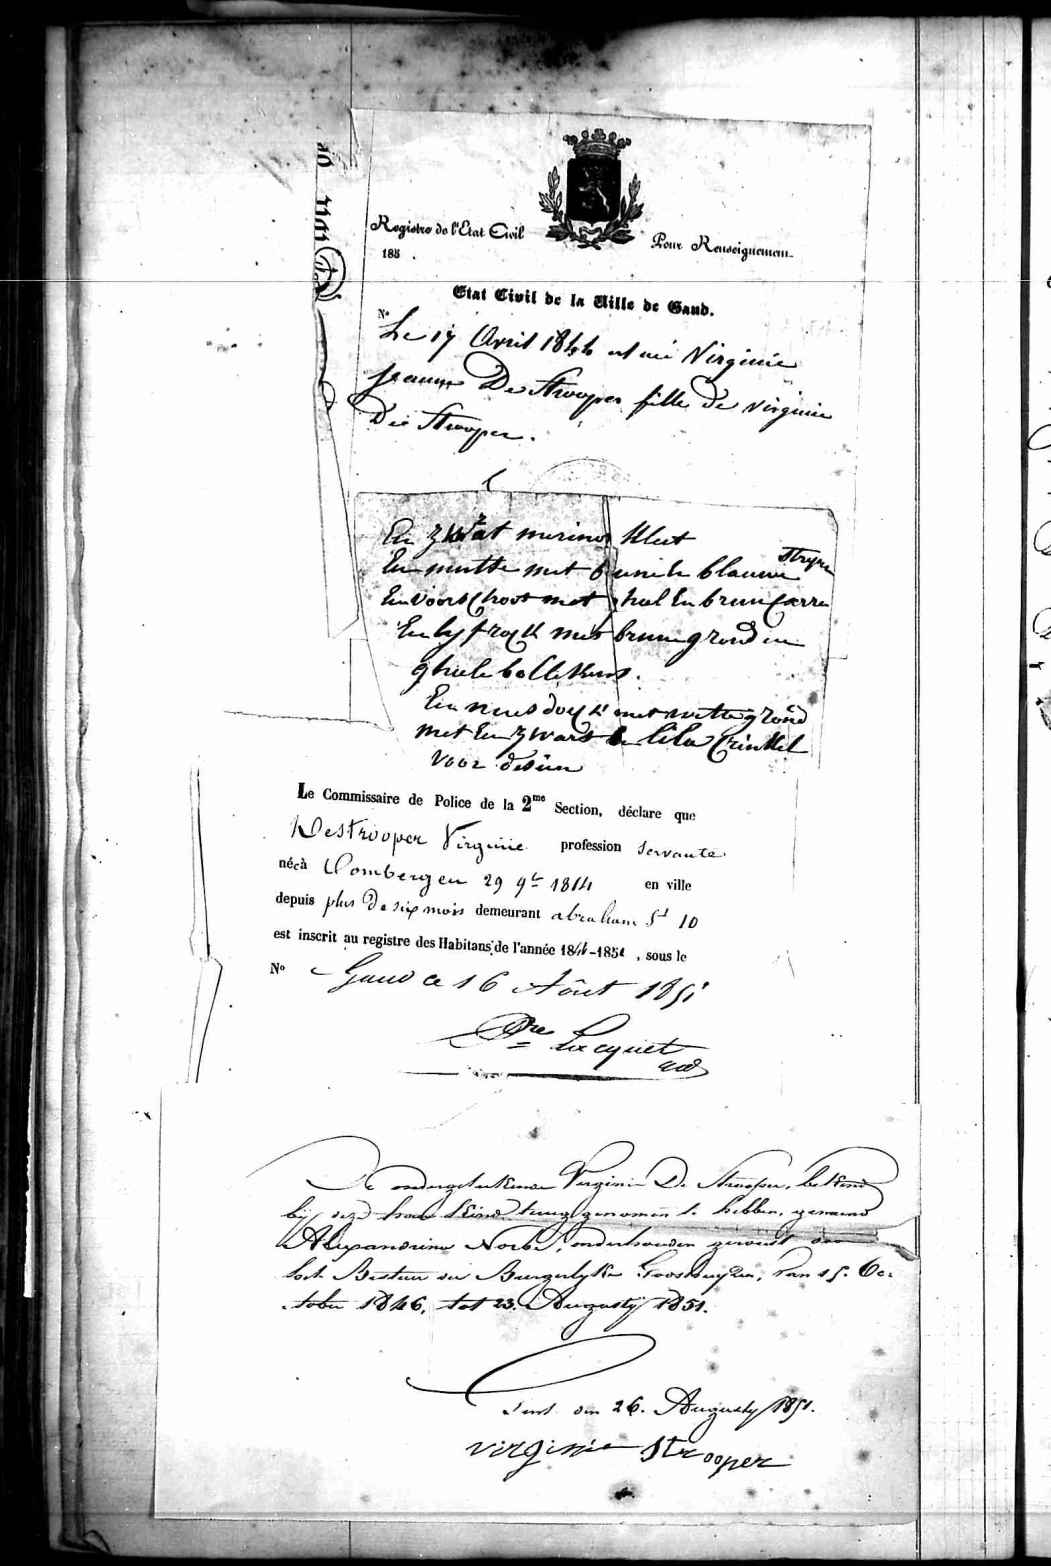 Registre de l'Etat Civil
185 .
Pour Renseignemen.
Etat Civil de la Ville de Gand.
N°
Le 17 Avril 1844 est née Virginie
Jeanne De Strooper fille de Virginie
De Strooper.
En zwart merinos kleet
En mutte met blauwe strepe
En voorschoot met ghel En bruin Carre
En lyfrock met bruine grond en
ghele bollekens.
En neusdoeck met witte grond
met En zwart En lila Crinkel
voor desein
Le Commissaire de Police de la 2me Section, déclare que
Destrooper Virginie profession servante
née à Lombergen 29 9bre 1814 en ville
depuis plus de six mois demeurant abraham St 10
est inscrit au registre des Habitans de l'année 1846-1851 , sous le
N°
Gand ce 16 Août 1851
Locquet
De ondergeteekende Virginie De Strooper, bekend
bij deze haar kind terug genomen te hebben, genaamd
Alexandrine onderhouden geweest door
het Bestuur der Burgerlyke Godshuyzen, van 15. Oc-
tober 1846, tot 23. Augusty 1851.
Gent den 26. Augusty 1851.
virginie strooper